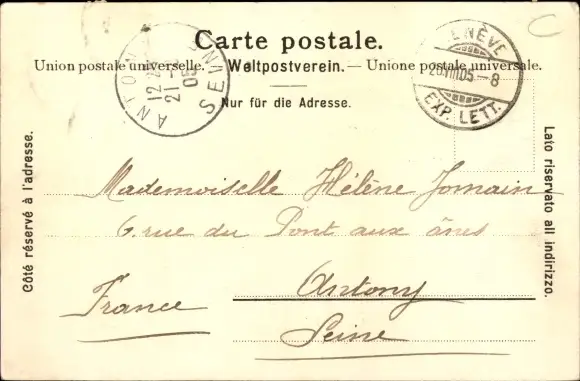 Carte postale.
Union postale universelle. — Weltpostverein. — Unione postale universale.
Nur für die Adresse.
Côté réservé à l'adresse.
Lato riservato all indirizzo.
GENÈVE
EXP. LETT.
ANTONY
SEINE
12
21
05
Mademoiselle Hélène Jomain
6. rue du Pont aux ânes
Antony
France
Seine